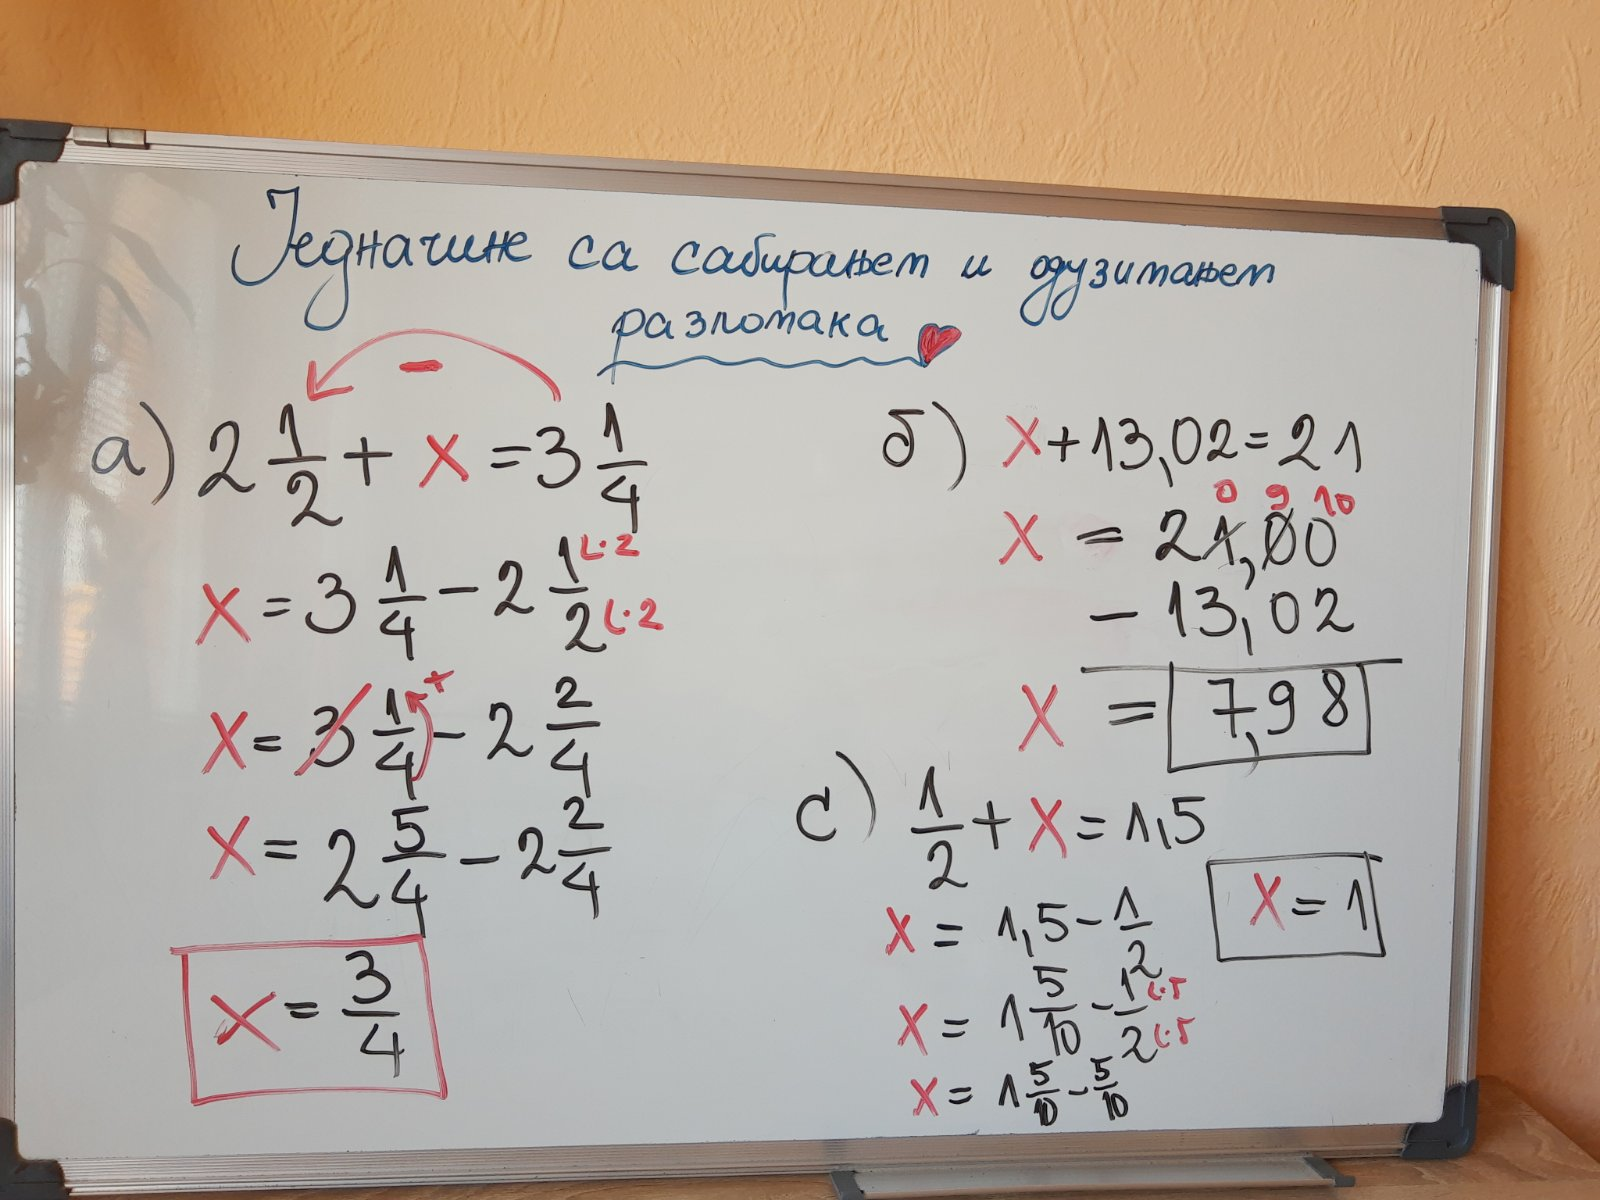 Једначине са сабирањем и одузимањем
разломака
-
а) 2 1/2 + x = 3 1/4
x = 3 1/4 - 2 1/2 (·2 (·2
x = 3 1/4 + - 2 2/4
x = 2 5/4 - 2 2/4
x = 3/4
б) x + 13,02 = 21
0 9 10
x = 21,00
- 13,02
x = 7,98
с) 1/2 + x = 1,5
x = 1,5 - 1/2
x = 1 5/10 - 1/2 (·5 (·5
x = 1 5/10 - 5/10
x = 1